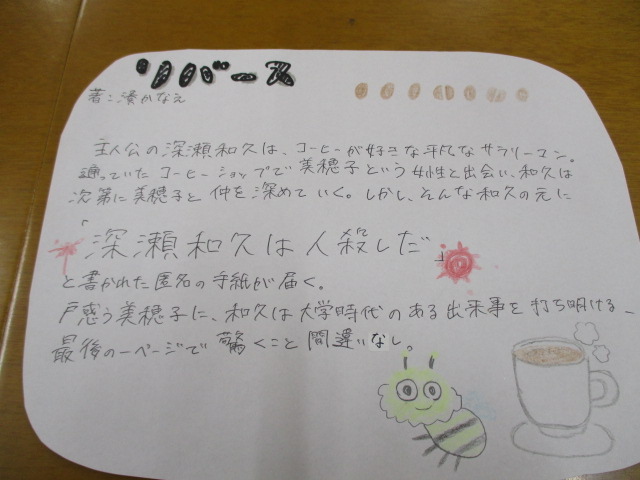 リバース
著：湊かなえ
主人公の深瀬和久は、コーヒーが好きな平凡なサラリーマン。
通っていたコーヒーショップで美穂子という女性と出会い、和久は
次第に美穂子と仲を深めていく。しかし、そんな和久の元に
「
深瀬和久は人殺しだ」
と書かれた匿名の手紙が届く。
戸惑う美穂子に、和久は大学時代のある出来事を打ち明ける―
最後の一ページで驚くこと間違いなし。